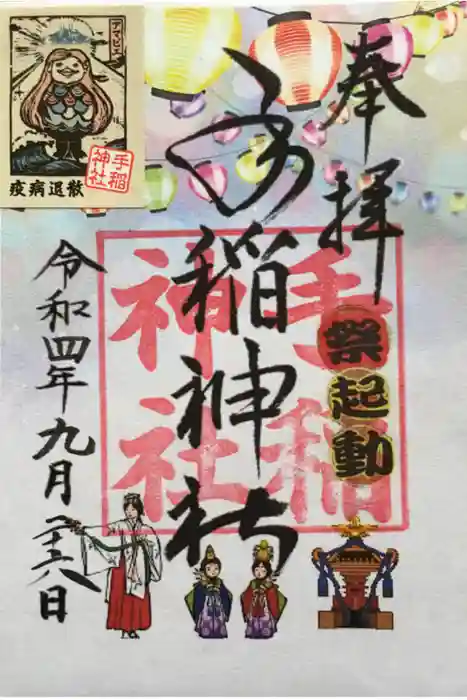 奉拝
手稲神社
手稲
神社
祭起動
令和四年九月二十六日
アマビエ
手稲
神社
疫病退散